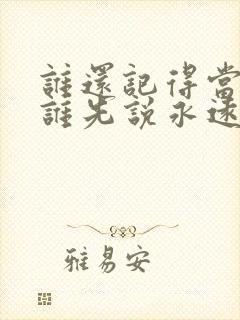 誰還記得當
誰先説永遠
雅易安